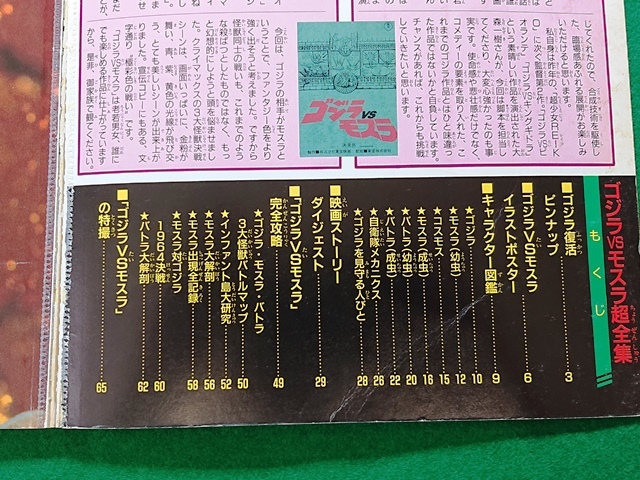 じてくれたので、合成技術を駆使し
た、臨場感あふれる展開がお楽しみ
いただけると思います。
私自身は昨年の、「超少女REIK
O」に次ぐ監督第2作。「ゴジラVSビ
オランテ」「ゴジラVSキングギドラ」
という素晴しい作品を演出された大
森一樹さんが、今回は脚本を担当し
てくださり、大変心強かったのも事
実です。使命感や悲壮感だけでなく、
コメディーの要素を取り入れた、こ
れまでのゴジラ作品とはひと味違っ
た作品ではないかと自負しています。
チャンスがあれば、これからも挑戦
していきたいと思います。
ゴジラVSモスラ
決定稿
今回は、ゴジラの相手がモスラと
いうことで、ファンタジー色をより
強く出そうと考えました。ですから
怪獣同士の戦いも、これまでのよう
な殺ばつとしたものではなく、もっ
と幻想的にしようと頭を悩ませまし
た。クライマックスの3大怪獣決戦
シーンは、画面いっぱいに、金粉が
舞い、青、紫、黄色の光線が飛び交
う、とても美しいシーンが出来上が
りました。宣伝コピーにもある、文
字通り〝極彩色の戦い〟です。
「ゴジラVSモスラ」は老若男女、誰に
でも楽しめる作品に仕上がっています
から、是非、御家族で観てください。
ゴジラVSモスラ超全集
もくじ
■ゴジラ復活
ピンナップ……3
■ゴジラVSモスラ
イラストポスター……6
■キャラクター図鑑……9
★ゴジラ……10
★モスラ(幼虫)……12
★コスモス……15
★モスラ(成虫)……16
★バトラ(幼虫)……20
★バトラ(成虫)……22
★自衛隊メカニックス……26
★ゴジラを見守る人びと……28
■映画ストーリー
ダイジェスト……29
■「ゴジラVSモスラ」
完全攻略……49
★ゴジラ・モスラ・バトラ
3大怪獣バトルマップ……50
★インファント島大研究……52
★モスラ大解剖……56
★モスラ出現全記録……58
★モスラ対ゴジラ
1964決戦……60
★バトラ大解剖……62
■「ゴジラVSモスラ」
の特撮……65